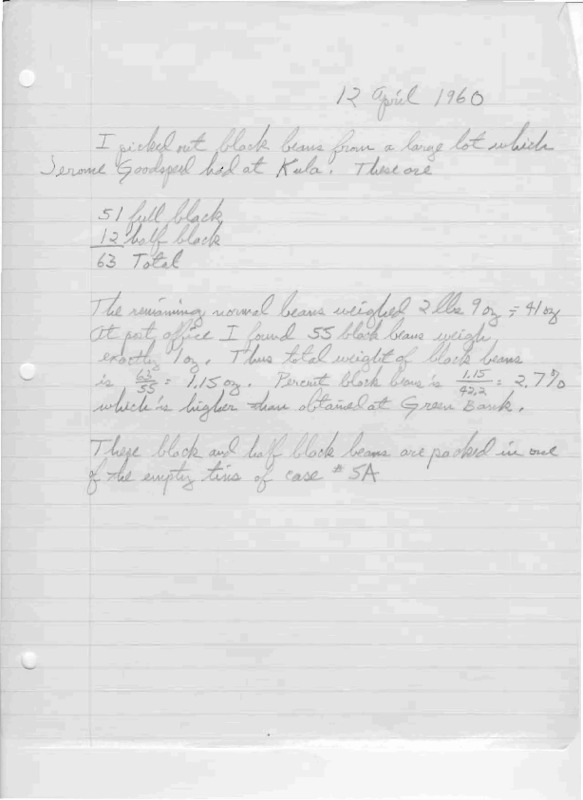 12 April 1960
I picked out black beans from a large lot which
Jerome Goodspeed had at Kula. These are
51 full black
12 half black
63 Total
The remaining normal beans weighed 2 lbs 9 oz = 41 oz
At post office I found 55 black beans weigh
exactly 1 oz. Thus total weight of black beans
is 63/55 = 1.15 oz. Percent black beans is 1.15/42.2 = 2.7%
which is higher than obtained at Green Bank.
These black and half black beans are packed in one
of the empty tins of case # 5A